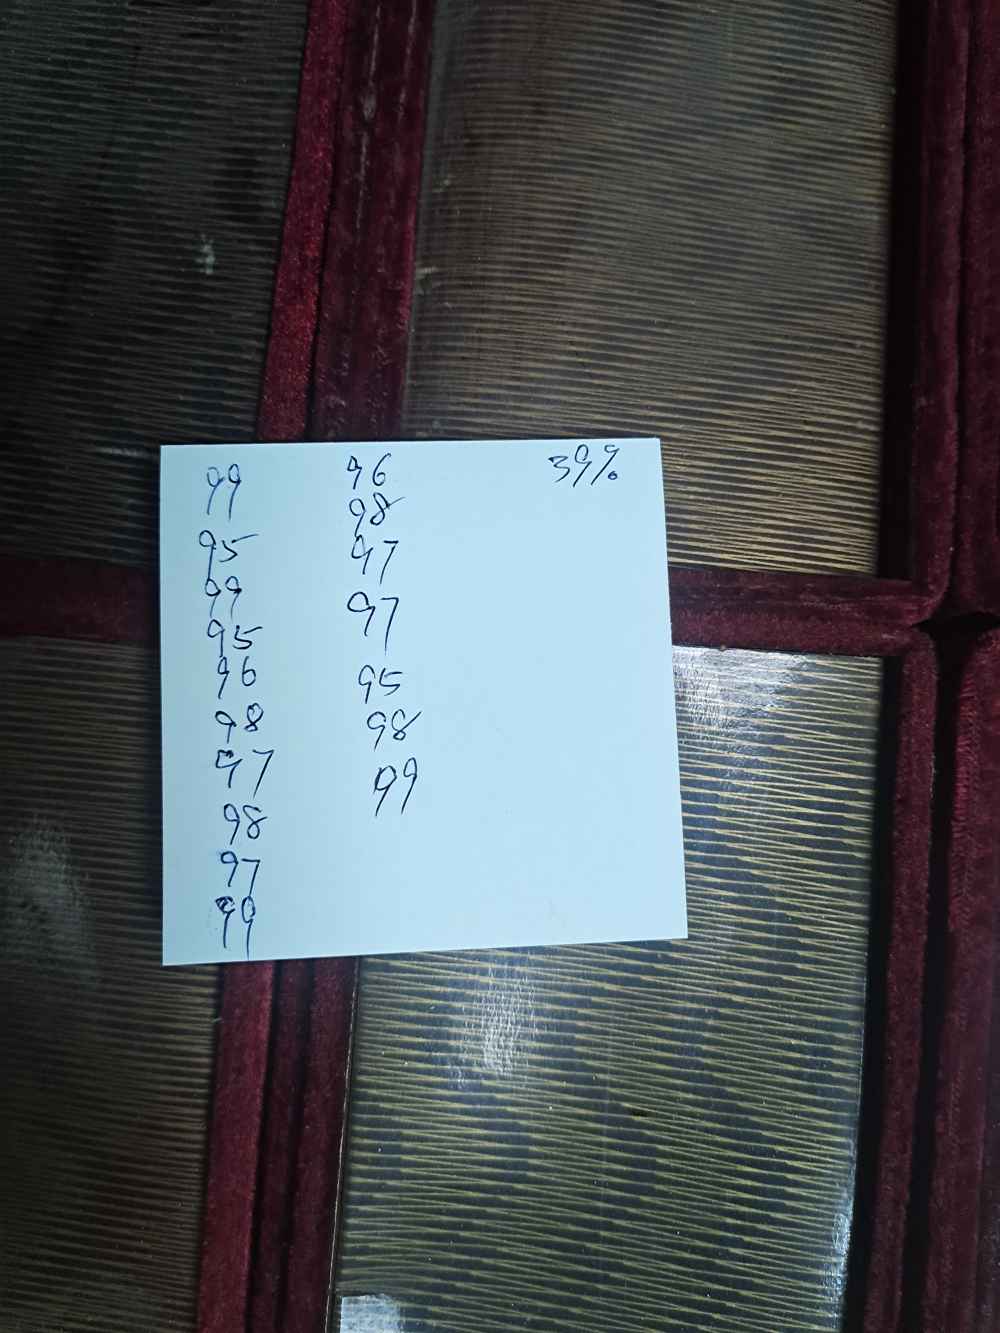 99 96 39%
95 98
99 97
95 97
96 95
98 98
97 99
98
97
99